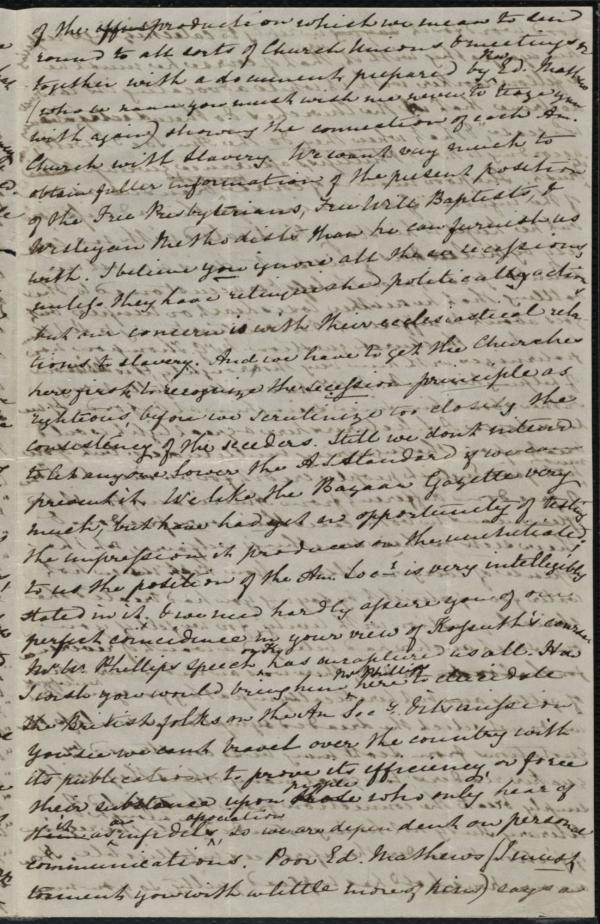 of the affins production which we mean to send
round to all sorts of Church Unions & meetings &c
together with a document prepared by Revd Ed. Mathews
(whose name you must wish me never to teaze you
with again) showing the connection of each Am.
Church with Slavery. We want very much to
obtain fuller information of the present position
of the Free Presbyterians, Free Will Baptists, &
Wesleyan Methodists than he can furnish us
with. I believe you ignore all these secessions
unless they have relinquished political action
but our concern is with their ecclesiastical rela
tions to slavery. And we have to get the Churches
here first to recognize the secession principle as
righteous, before we scrutinize too closely the
consistency of the seceders. Still we don't intend
to let anyone lower the A.S. Standard if we can
prevent it. We like the Bazaar Gazette very
much, but have had yet no opportunity of testing
the impression it produces on the uninitiated;
to us the position of the Am. Socy is very intelligibly
stated in it, & we need hardly assure you of our
perfect coincidence in your view of Kossuth's course
Mr W. Phillips speech on K. has enraptured us all. How
I wish you would bring him Mr Phillips here to elucidate
the British folks on the Am Socy. Discussion
You see we can't travel over the country with
its publications to prove its efficiency, or force
their substance upon people who only hear of
it as an infidel association, so we are dependent on personal
communications. Poor Ed. Mathews (I must
torment you with a little more of him) says a